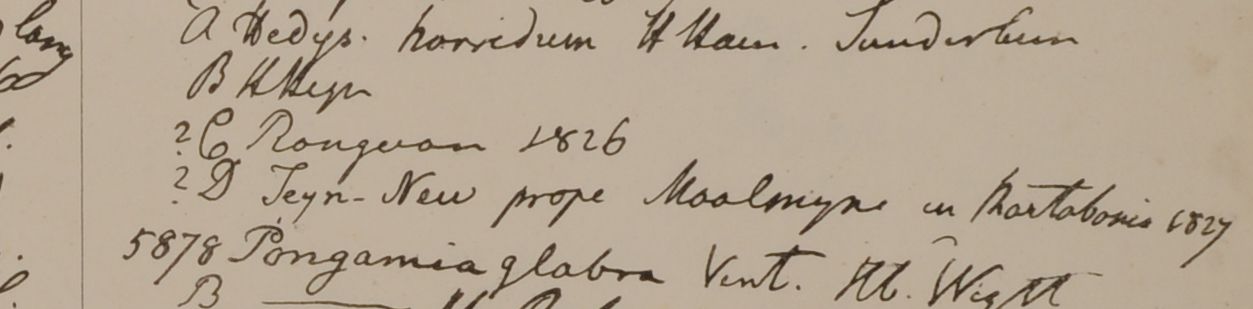 long
A Hedys. horridum H Ham. Sunderbun
B H Heyn
? C Rongoon 1826
? D Teyn-New prope Moolmyne in Martabania 1827
5878 Pongamia glabra Vent. Hb. Wight
B